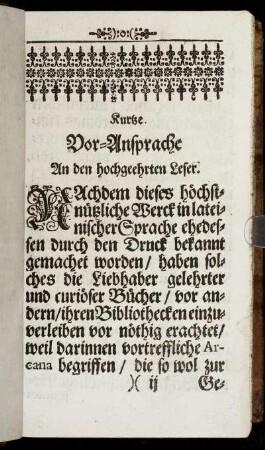 ):o:(
Kurtze.
Vor-Ansprache
An den hochgeehrten Leser.
NAchdem dieses höchst-
nützliche Werck in latei-
nischer Sprache ehedes-
sen durch den Druck bekannt
gemachet worden/ haben sol-
ches die Liebhaber gelehrter
und curiöser Bücher/ vor an-
dern/ ihren Bibliothecken einzu-
verleiben vor nöthig erachtet/
weil darinnen vortreffliche Ar-
cana begriffen/ die so wol zur
)( ij Ge-